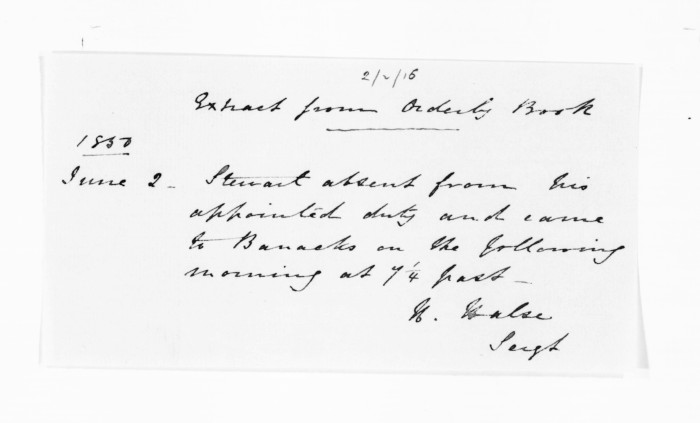 2/2/16
Extract from Orderly Book
1850
June 2 - Stewart absent from his
appointed duty and came
to Barracks on the following
morning at 7 1/4 past -
H. Halse
Sergt